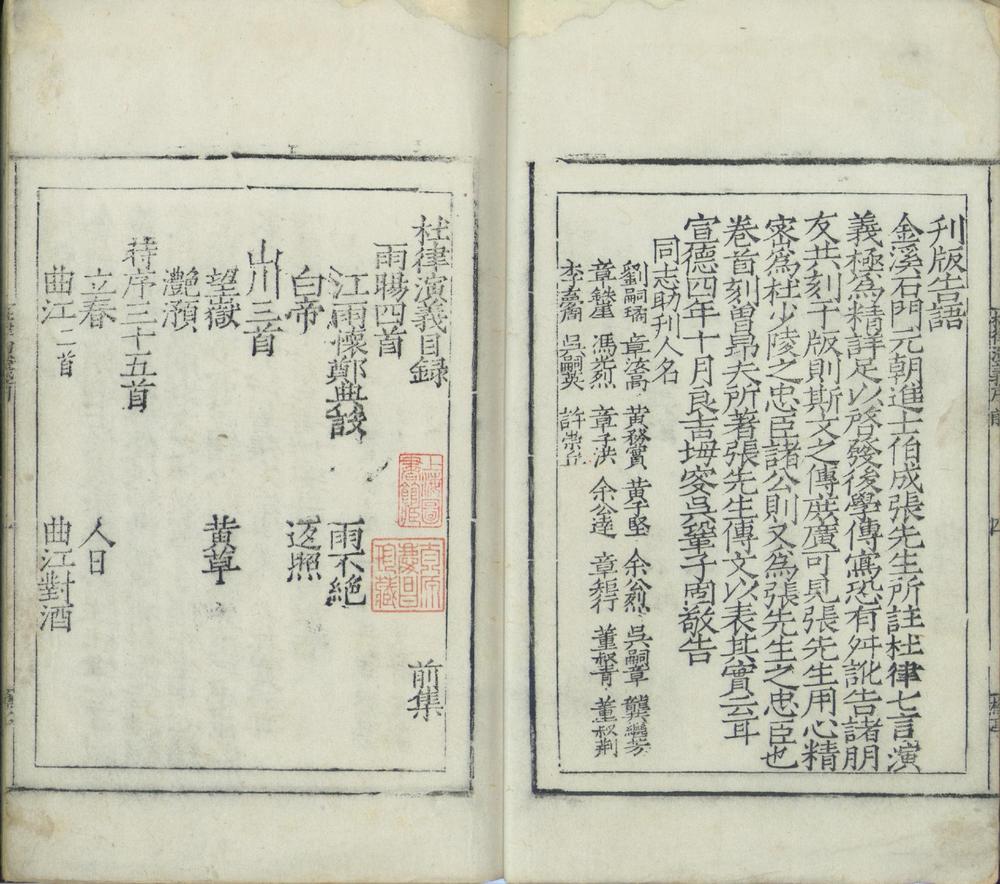 刋版告語
金溪石門元朝進士伯成張先生所註杜律七言演
義極為精詳足以啓發後學傳寫恐有舛訛告諸朋
友共刻于版則斯文之傳庶廣可見張先生用心精
宻為杜少陵之忠臣諸公則又為張先生之忠臣也
卷首刻曽昻夫所著張先生傳文以表其實云耳
宣德四年十月良吉
吳
子固敬告
同志助刋人名
劉嗣
章
黄
黄子堅 余公烈 吳嗣章 龔
章
馮光烈 章子
余公達 章
董
董叔
李
吳嗣
許崇
杜律演義目録 前集
雨暘四首
江雨懷鄭典設 雨不絶
白帝 返照
山川三首
望嶽 黄草
灧澦
時序三十五首
立春 人日
曲江二首 曲江對酒
上海圖
書館藏